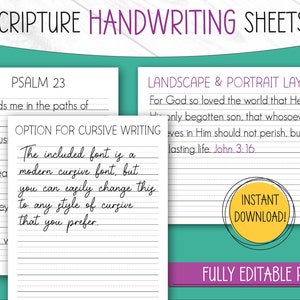 CRIPTURE HANDWRITING SHEETS
PSALM 23
ds me in the paths of
LANDSCAPE & PORTRAIT LAY
For God so loved the world that He
His only begotten son, that whosoev
eves in Him should not perish, bu
lasting life. John 3:16
OPTION FOR CURSIVE WRITING
The included font is a
modern cursive font, but
you can easily change this
to any style of cursive
that you prefer.
INSTANT
DOWNLOAD!
FULLY EDITABLE